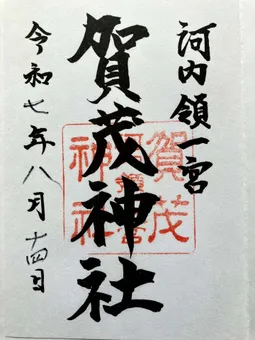 河内領一宮
賀茂神社
令和七年八月十四日
賀茂
神社